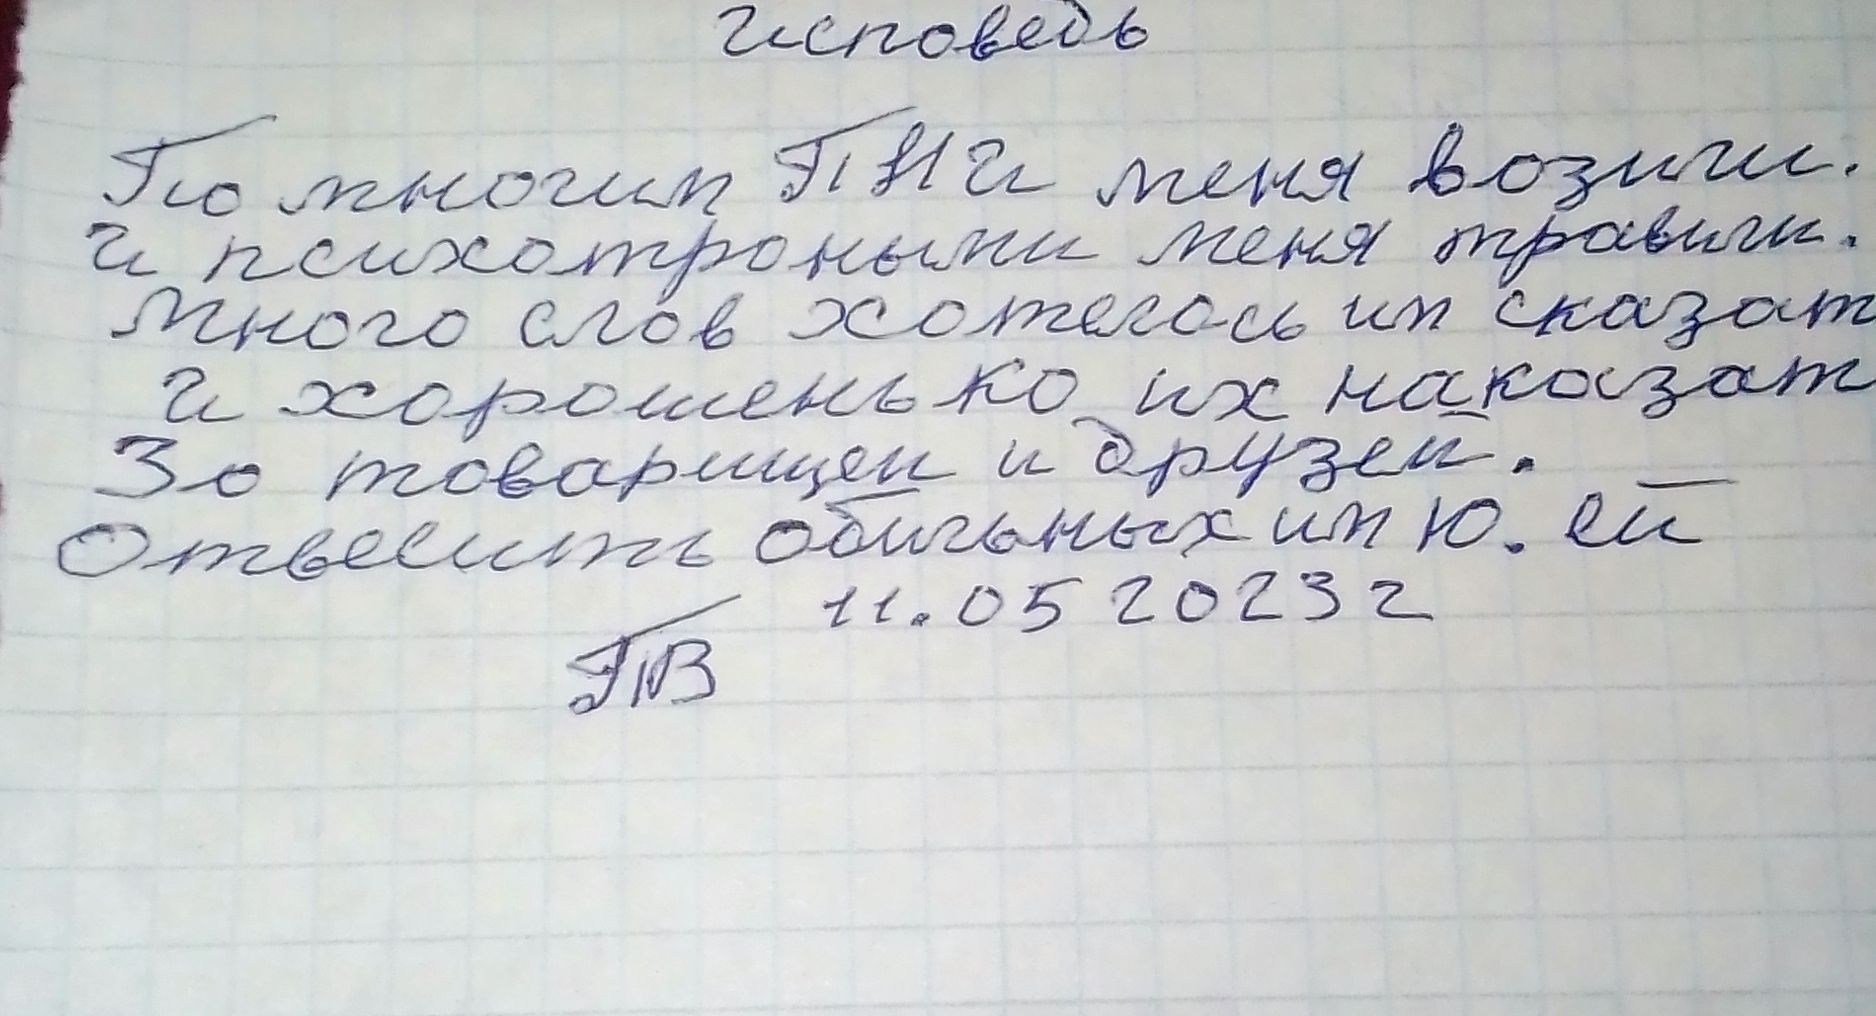 Исповедь
По многим ПНИ меня возили.
И психотроными меня травили.
Много слов хотелось им сказат
И хорошенько их наказат
За товарищеи и друзей.
Отвесить обильных им Ю. ей
11.05 2023 г
ПВ